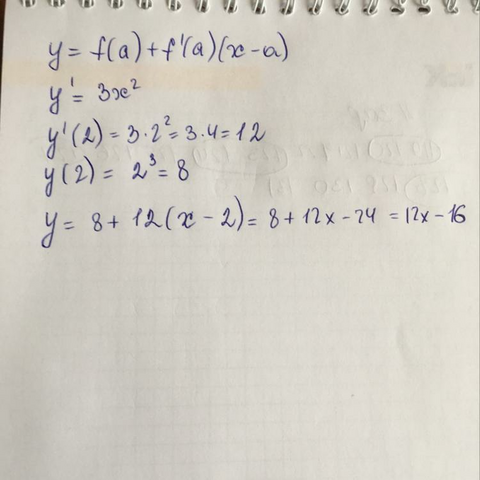 y = f(a) + f'(a)(x - a)
y' = 3x²
y'(2) = 3·2² = 3·4 = 12
y(2) = 2³ = 8
y = 8 + 12(x - 2) = 8 + 12x - 24 = 12x - 16